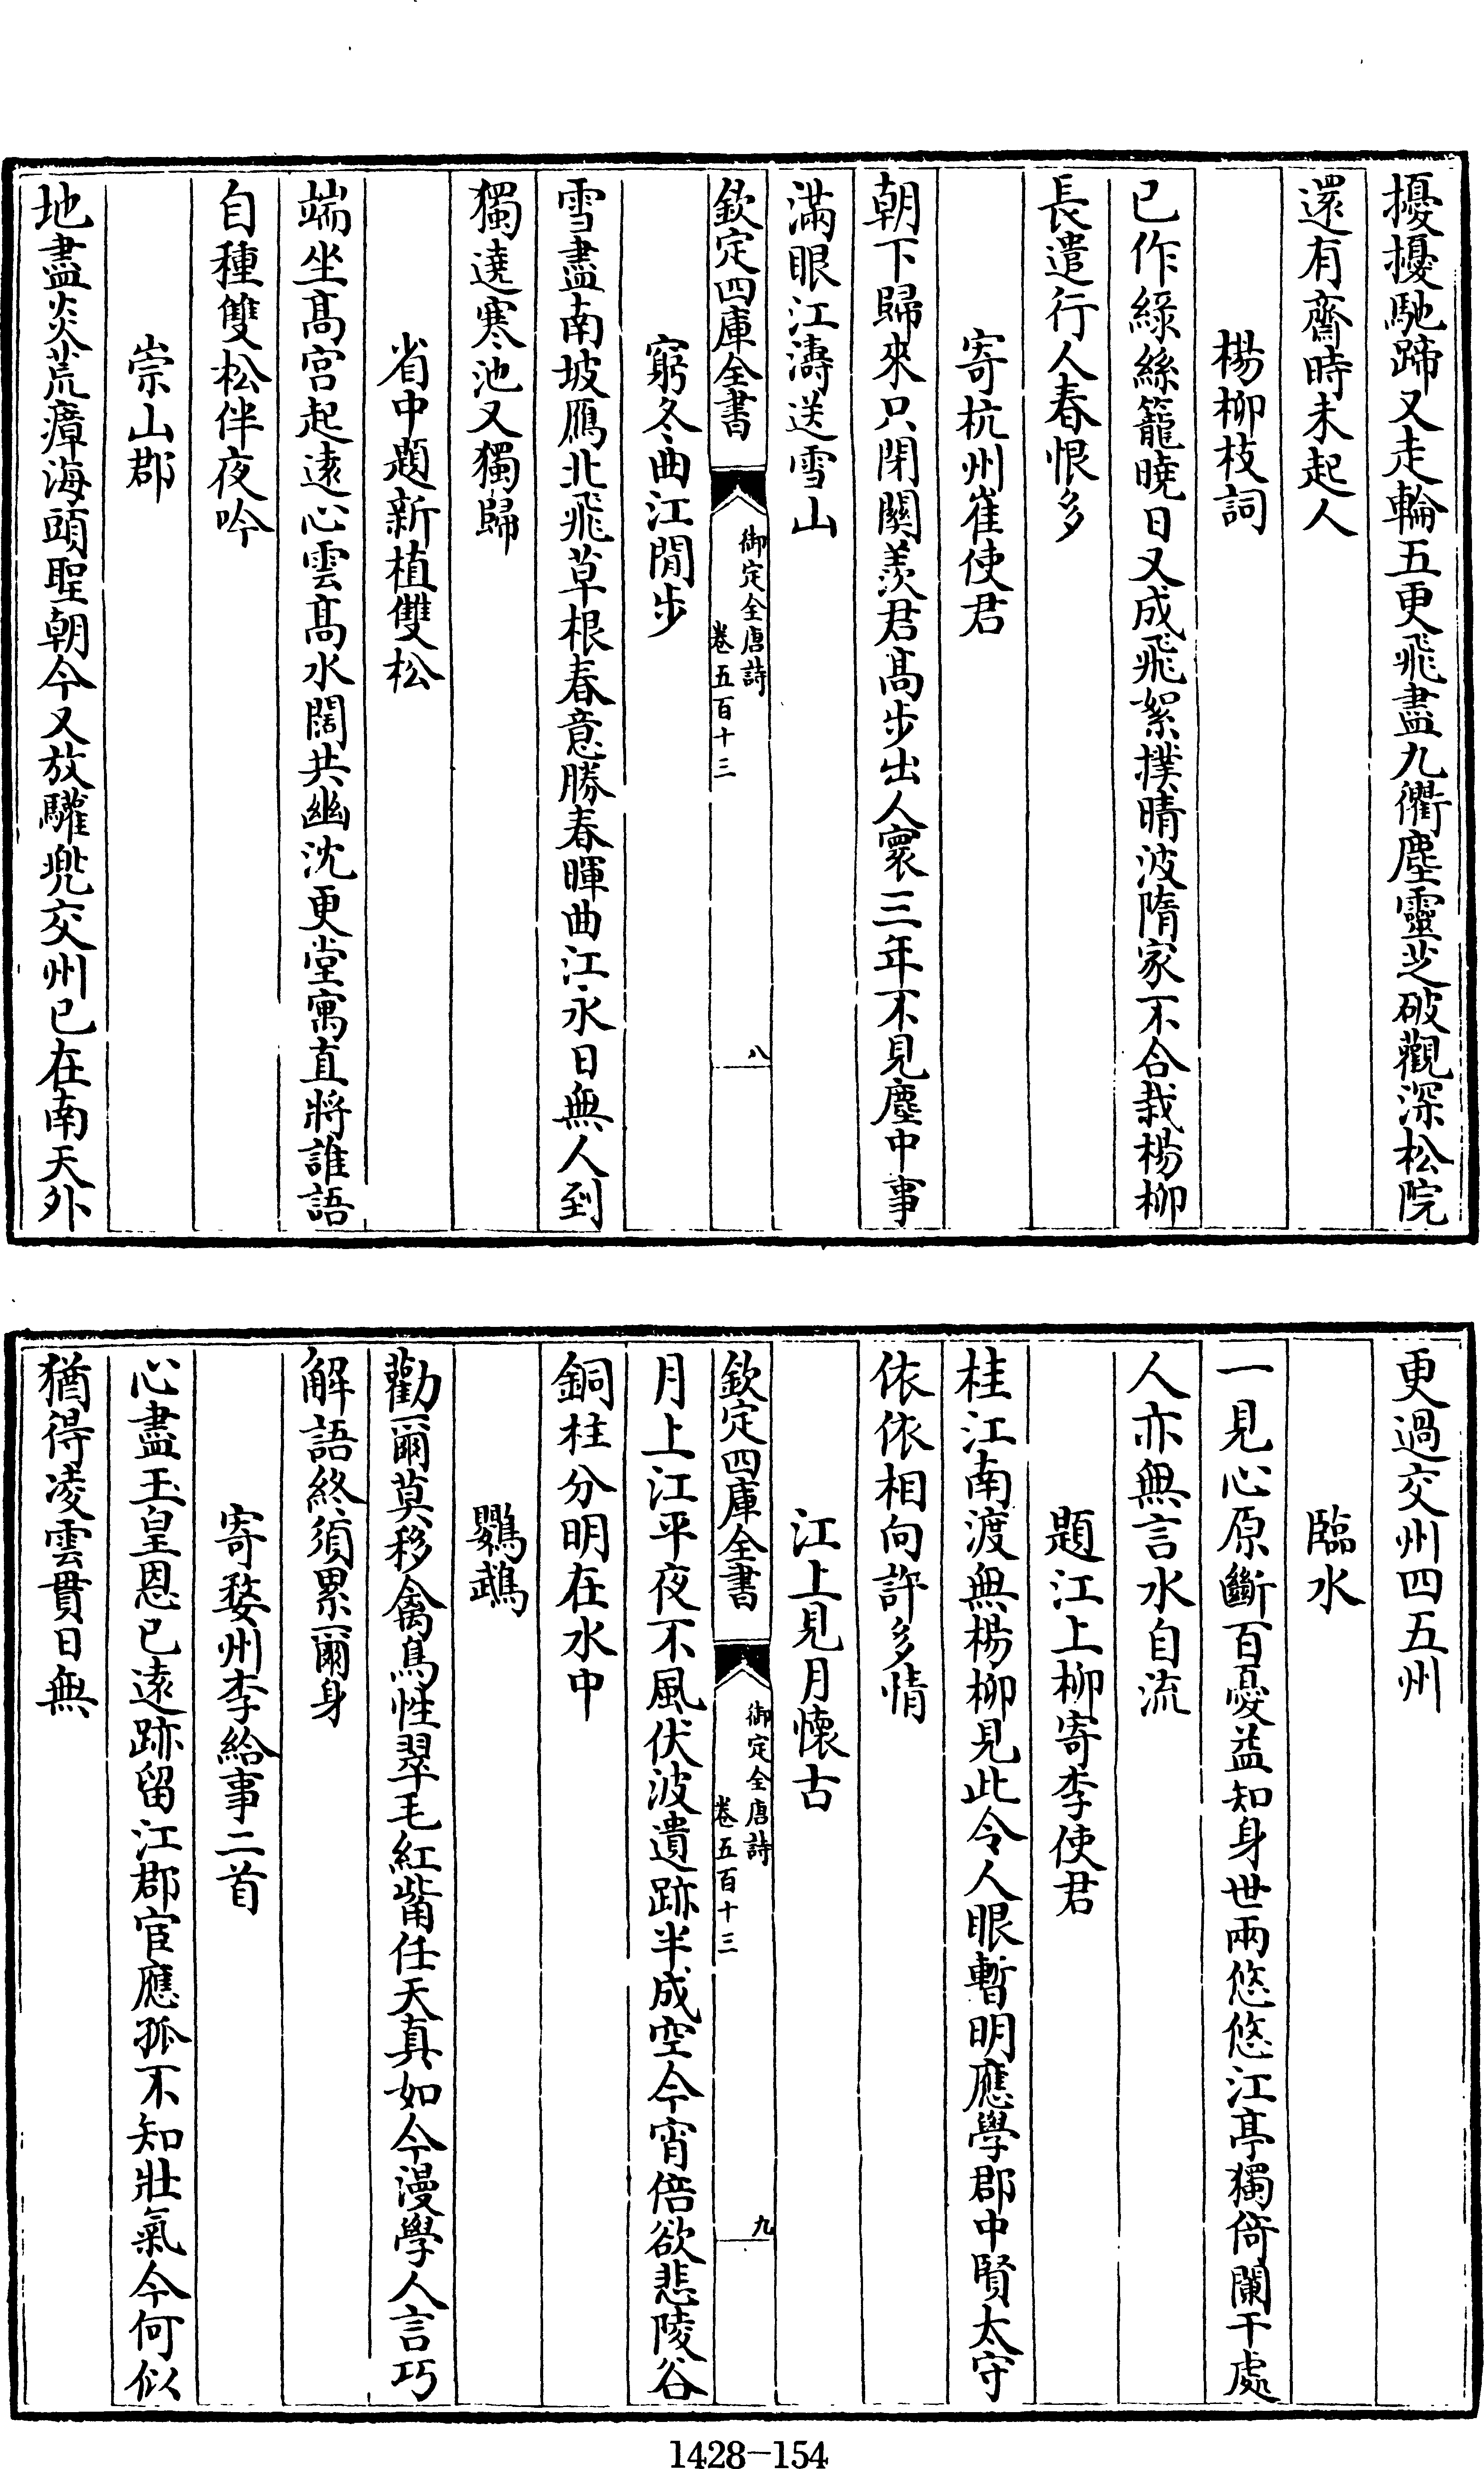 擾擾馳蹄又走輪五更飛盡九衢塵靈芝破觀深松院
還有齋時未起人
楊柳枝詞
已作綠絲籠曉日又成飛絮撲晴波隋家不合栽楊柳
長遣行人春恨多
寄杭州崔使君
朝下歸來只閉關羨君高步出人寰三年不見塵中事
滿眼江濤送雪山
欽定四庫全書
御定全唐詩
卷五百十三
八
窮冬曲江閒步
雪盡南坡雁北飛草根春意勝春暉曲江永日無人到
獨遶寒池又獨歸
省中題新植雙松
端坐高宮起遠心雲高水闊共幽沈更堂寓直將誰語
自種雙松伴夜吟
崇山郡
地盡炎荒瘴海頭聖朝今又放驩兜交州已在南天外
更過交州四五州
臨水
一見心原斷百憂益知身世兩悠悠江亭獨倚闌干處
人亦無言水自流
題江上柳寄李使君
桂江南渡無楊柳見此令人眼暫明應學郡中賢太守
依依相向許多情
江上見月懷古
欽定四庫全書
御定全唐詩
卷五百十三
九
月上江平夜不風伏波遺跡半成空今宵倍欲悲陵谷
銅柱分明在水中
鸚鵡
勸爾莫移禽鳥性翠毛紅觜任天真如今漫學人言巧
解語終須累爾身
寄婺州李給事二首
心盡玉皇恩已遠跡留江郡宦應孤不知壯氣今何似
猶得凌雲貫日無
1428-154